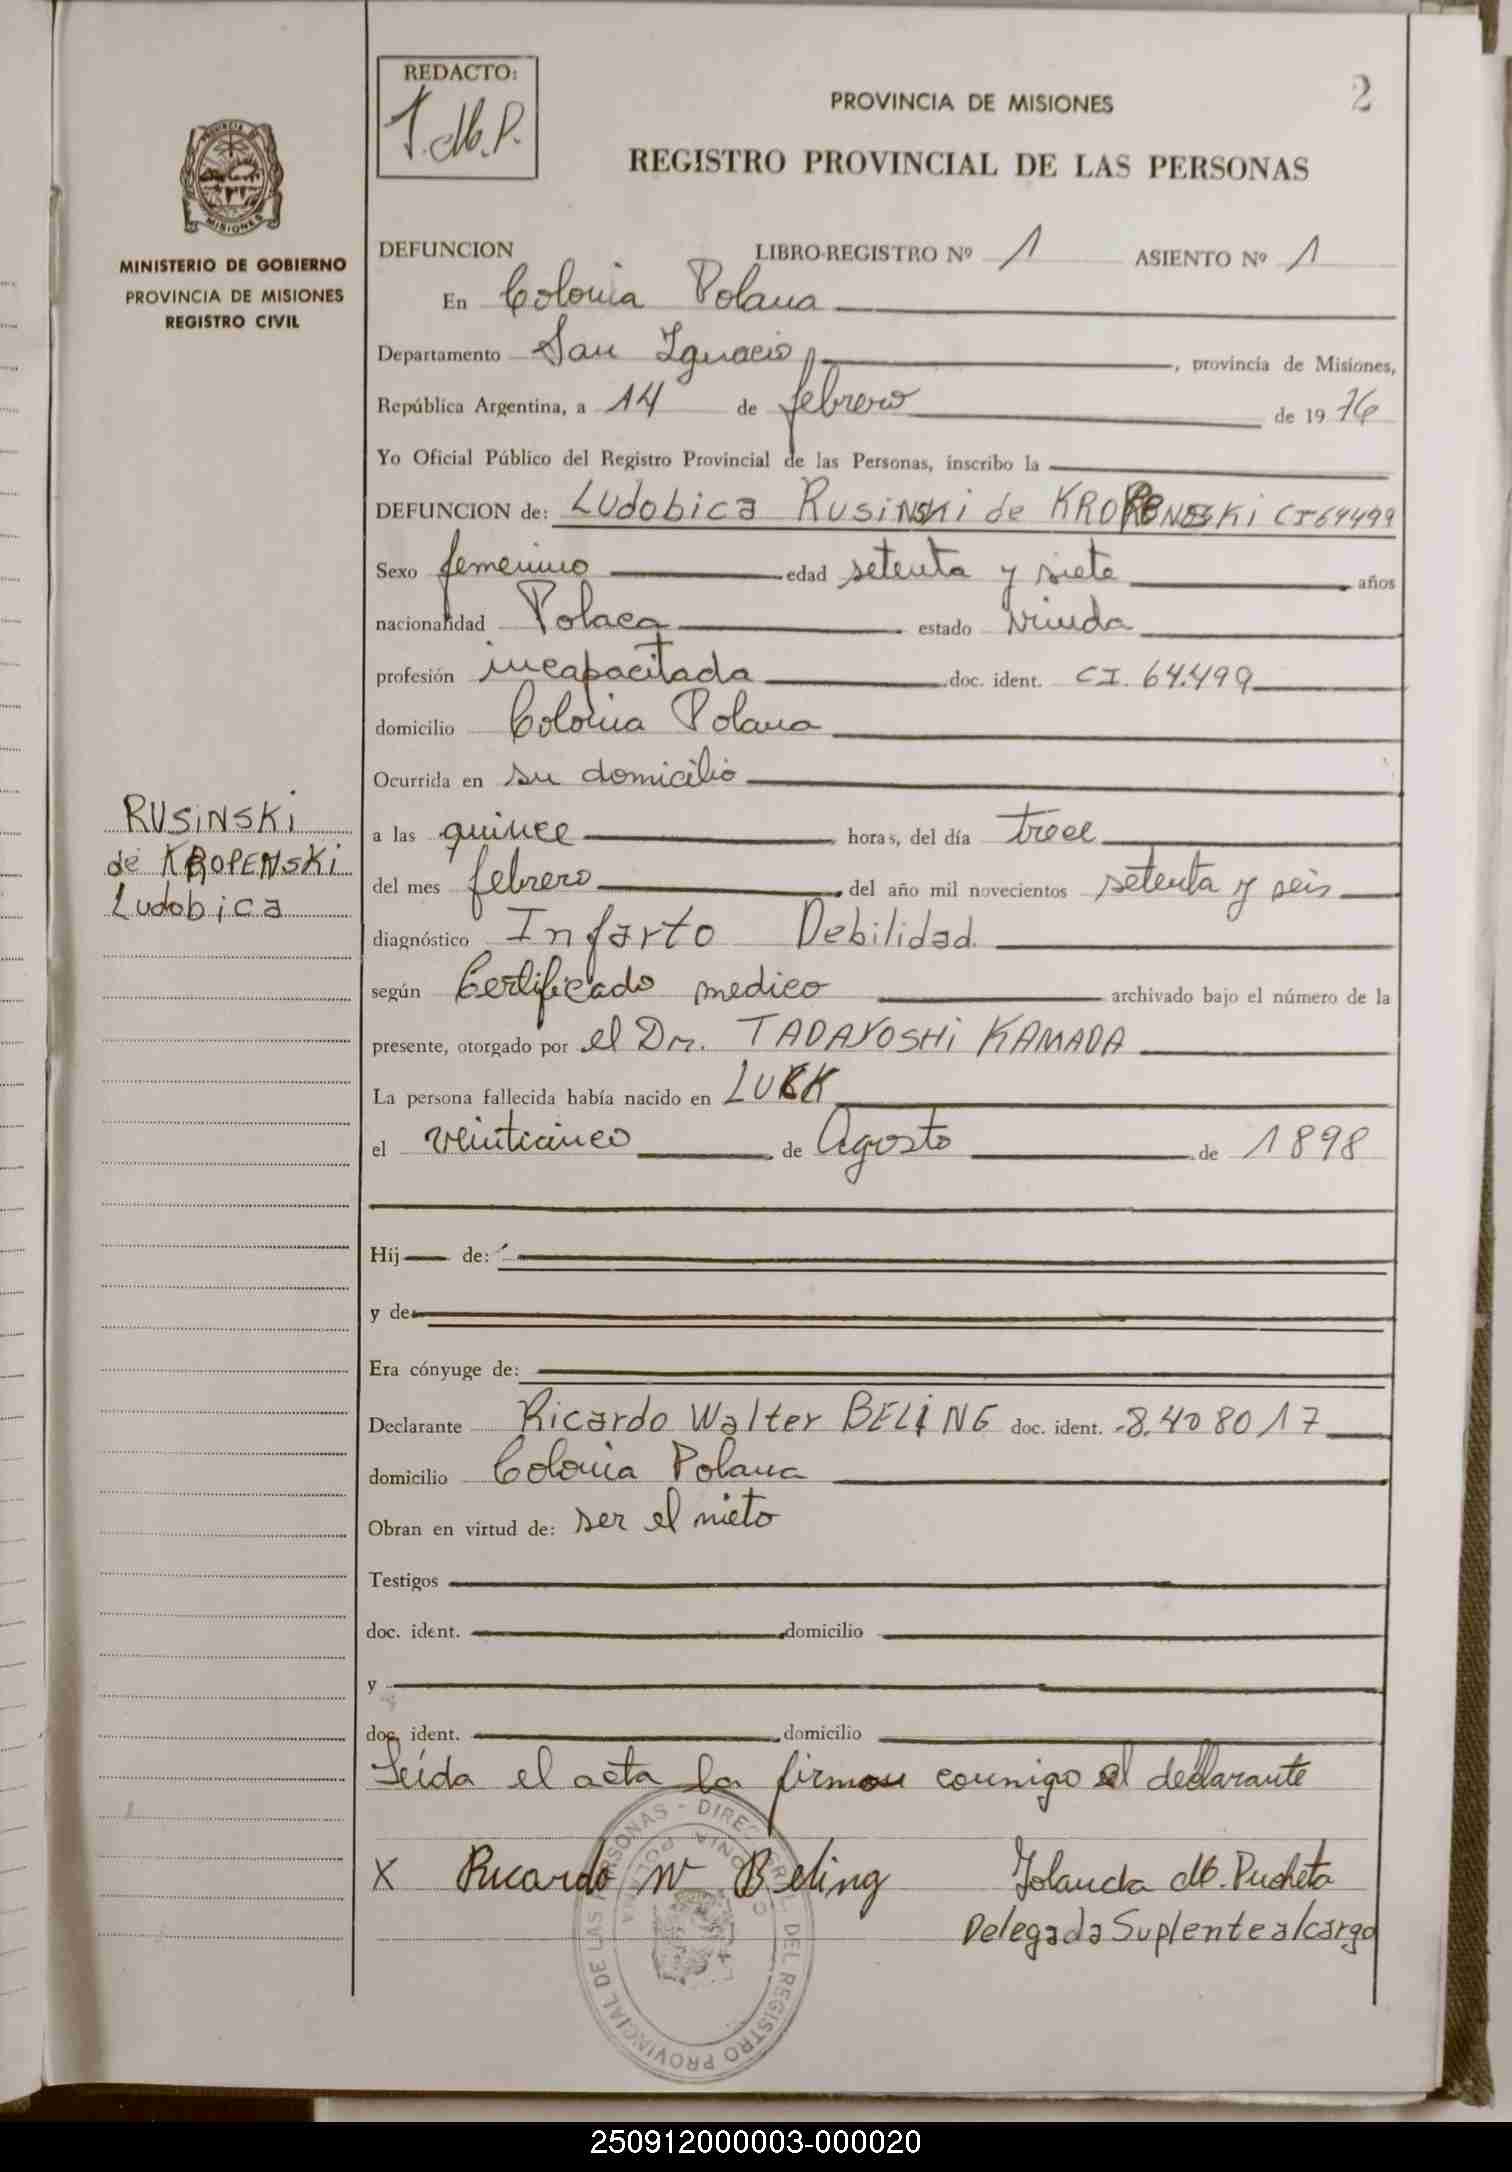 REDACTO:
PROVINCIA DE MISIONES
2
REGISTRO PROVINCIAL DE LAS PERSONAS
MISIONES
MINISTERIO DE GOBIERNO
PROVINCIA DE MISIONES
REGISTRO CIVIL
DEFUNCION LIBRO-REGISTRO Nº 1 ASIENTO Nº 1
En Colonia Polana
Departamento San Ignacio, provincia de Misiones,
República Argentina, a 14 de febrero de 1976
Yo Oficial Público del Registro Provincial de las Personas, inscribo la
DEFUNCION de: Ludobica Rusinski de KROPENSKi CI 64499
Sexo femenino edad setenta y siete años
nacionalidad Polaca estado viuda
profesión incapacitada doc. ident. CI. 64.499
domicilio Colonia Polana
Ocurrida en su domicilio
RUSiNSKi
de KROPENSKi
Ludobica
a las quince horas, del día trece
del mes febrero, del año mil novecientos setenta y seis
diagnóstico Infarto Debilidad.
según Certificado medico archivado bajo el número de la
presente, otorgado por el Dr. TADAYOSHi KAMADA
La persona fallecida había nacido en
el veinticinco de Agosto de 1898
Hij de:
y de
Era cónyuge de:
Declarante Ricardo Walter BELiNG doc. ident. 8.408017
domicilio Colonia Polana
Obran en virtud de: ser el nieto
Testigos
doc. ident. domicilio
y
doc. ident. domicilio
Leída el acta la firman conmigo el declarante
X Ricardo W Beling Yolanda M. Pucheta
Delegada Suplente al cargo
250912000003-000020